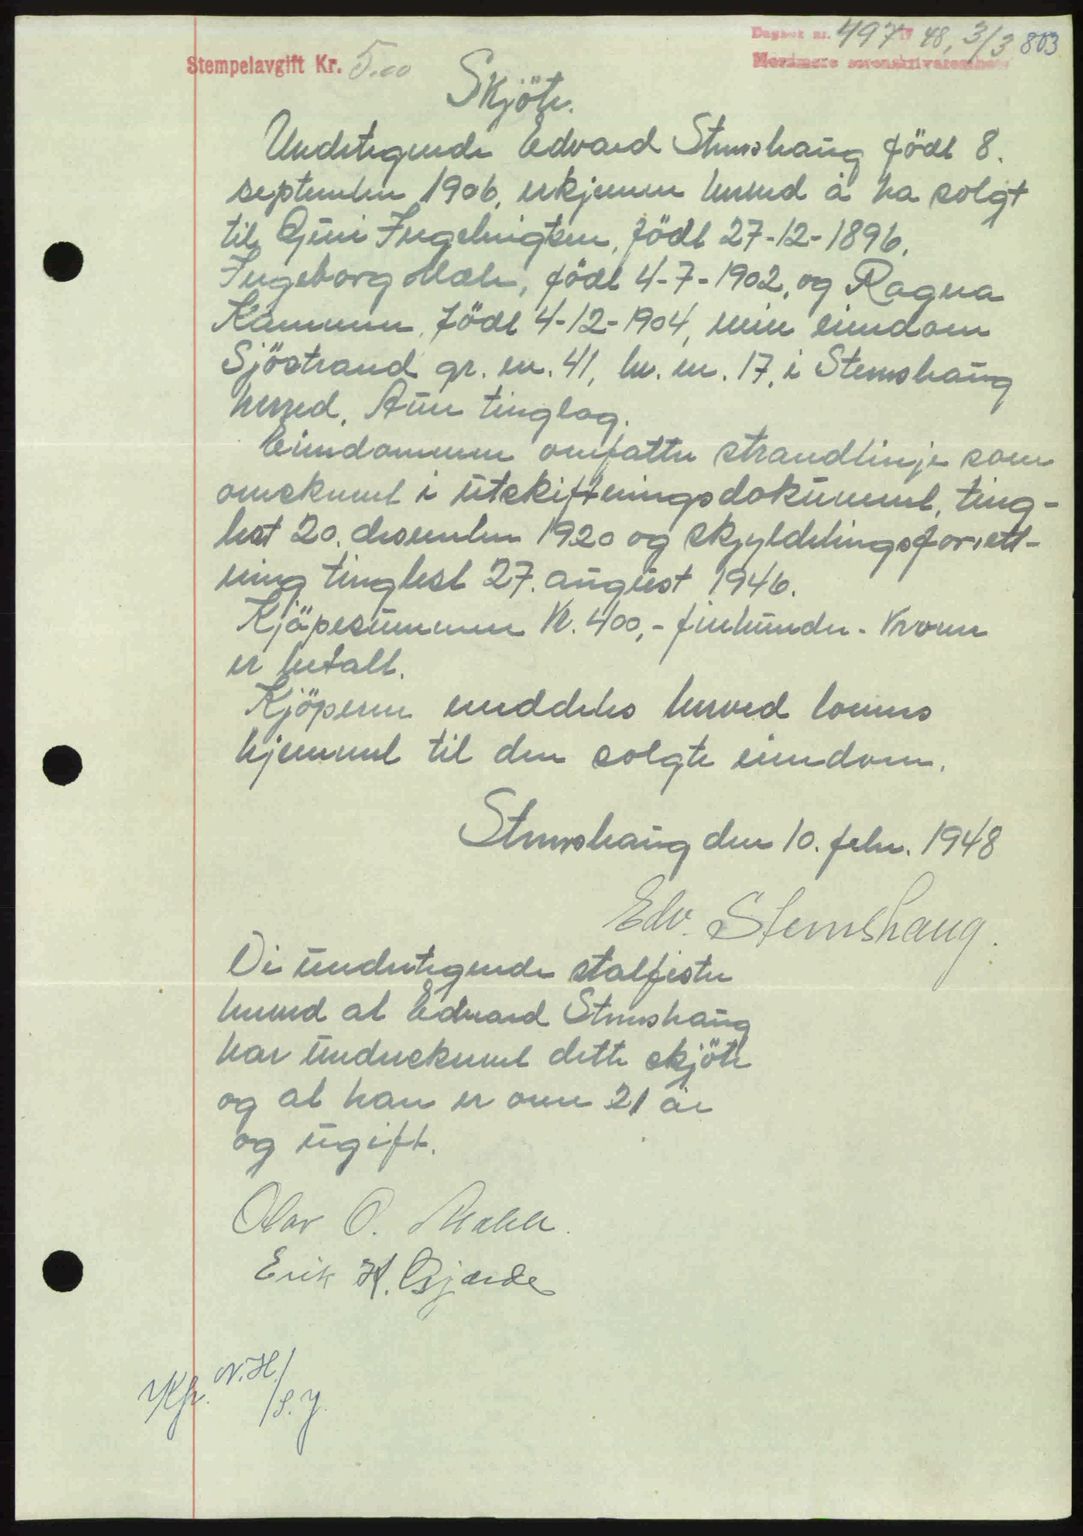 Stempelavgift Kr. 5.00
Dagbok nr. 497 19 48, 3/3 803
Nordmøre sorenskriverembete
Skjöte.
Undertegnede Edvard Stemshaug född 8.
september 1906, erkjenner herved å ha solgt
til Guri Ingebrigtsen, född 27-12-1896,
Ingeborg Mæle, född 4-7-1902, og Ragna
född 4-12-1904, min eiendom
Sjöstrand gr. nr. 41, br. nr. 17, i Stemshaug
herred, Aure tinglag.
Eiendommen omfatter strandlinje som
omskrevet i utskiftningsdokument, ting-
lest 20. desember 1920 og skjyldelingsforrett-
ning tinglest 27. august 1946.
Kjöpesummen Kr. 400,- firehundre - kroner
er betalt.
Kjöperne meddeles herved lovens
hjemmel til den solgte eiendom.
Stemshaug den 10. febr. 1948
Edv. Stemshaug.
Vi undertegnede stadfester
herved at Edvard Stemshaug
har underskrevet dette skjöte
og at han er over 21 år
og ugift.
Olav O. Mæle.
Erik H. Gjærde
Kfr. N.H./
/S.Y.